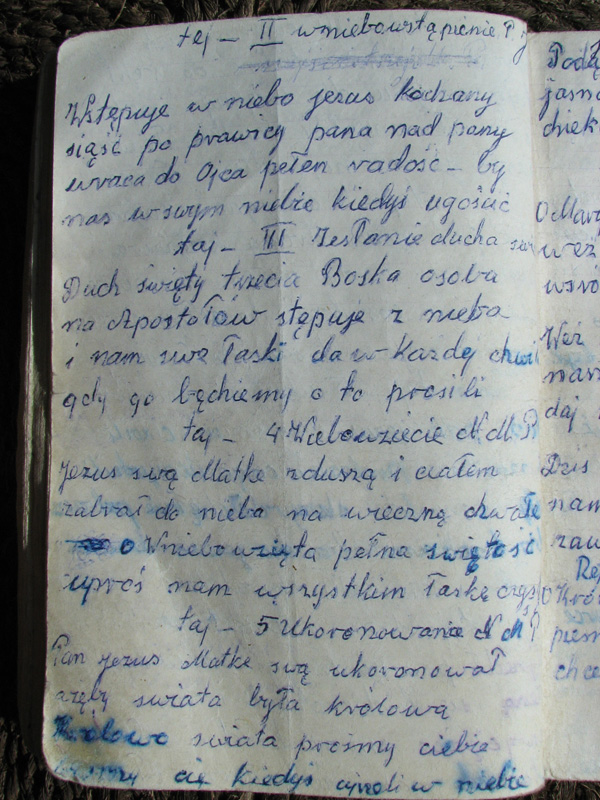 taj - II wniebowstąpienie P J
Wstępuje w niebo jezus kochany
siąść po prawicy pana nad pany
wraca do Ojca pełen radość - by
nas w swym niebie kiedyś ugościć
taj - III Zesłanie ducha św
Duch święty trzecia Boska osoba
na Apostołów stępuje z nieba
i nam swe Łaski da w każdej chwil
gdy go będziemy o to prosili
taj - 4 Wiebowziecie N. M. P
Jezus swą Matke z duszą i ciałem
zabrał do nieba na wieczną chwałe
o Wniebowzięta pełna świętość
uproś nam wszystkim Łaskę czys
taj - 5 Ukoronowanie N M P
Pan jezus Matke swą ukoronował
ażeby swiata była królową
Królowo swiata prosimy ciebie
cię kiedyś w niebie
Podą
jasno
dziek
O Mary
weź
wśró
Weź
nasz
daj
Dziś
nam
zaw
O Kró
pies
chce